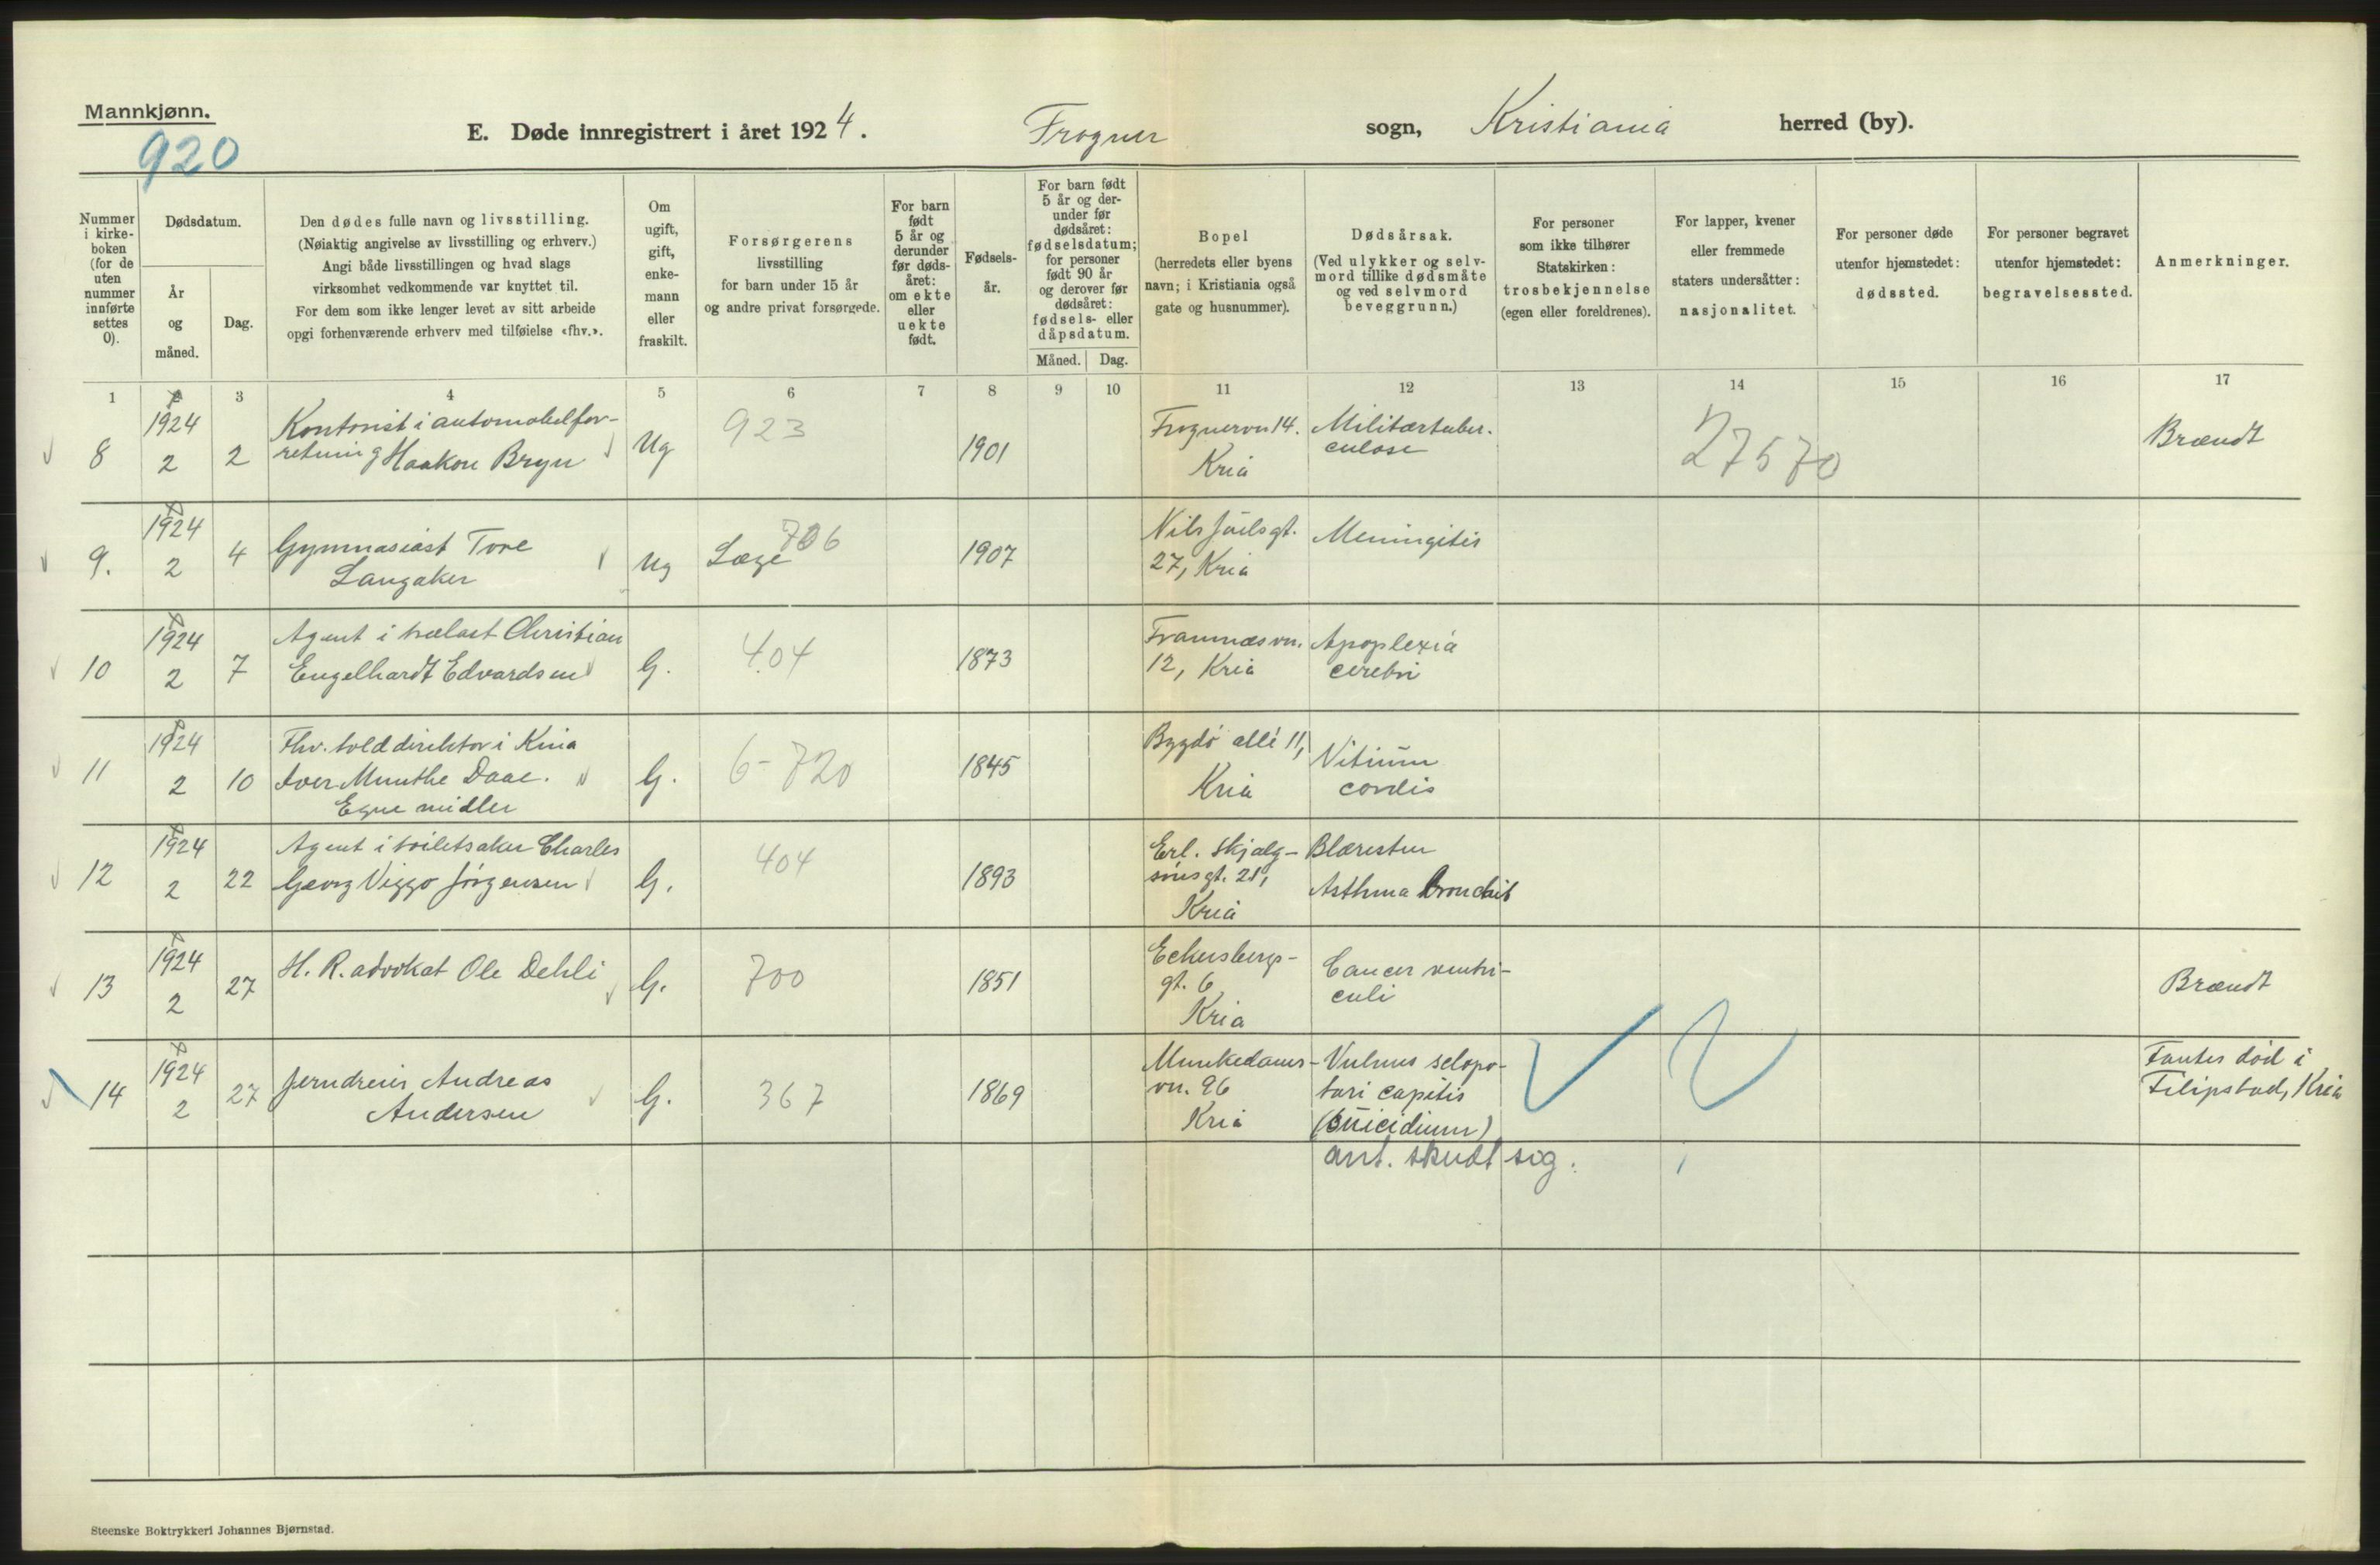 Mannkjønn.
920
E. Døde innregistrert i året 1924. Frogner sogn, Kristiania herred (by).
Nummer i kirke-boken (for de uten nummer innførte settes 0).
Dødsdatum.
År og måned.
Dag.
Den dødes fulle navn og livsstilling.
(Nøiaktig angivelse av livsstilling og erhverv.)
Angi både livsstillingen og hvad slags
virksomhet vedkommende var knyttet til.
For dem som ikke lenger levet av sitt arbeide
opgi forhenværende erhverv med tilføielse «fhv.».
Om ugift, gift, enke-mann eller fraskilt.
Forsørgerens
livsstilling
for barn under 15 år
og andre privat forsørgede.
For barn født 5 år og derunder før døds-året: om ekte eller uekte født.
Fødsels-år.
For barn født 5 år og der-under før dødsåret: fødselsdatum; for personer født 90 år og derover før dødsåret: fødsels- eller dåpsdatum.
Måned. Dag.
Bopel
(herredets eller byens
navn; i Kristiania også
gate og husnummer).
Dødsårsak.
(Ved ulykker og selv-
mord tillike dødsmåte
og ved selvmord
beveggrunn.)
For personer
som ikke tilhører
Statskirken:
trosbekjennelse
(egen eller foreldrenes).
For lapper, kvener
eller fremmede
staters undersåtter:
nasjonalitet.
For personer døde
utenfor hjemstedet:
dødssted.
For personer begravet
utenfor hjemstedet:
begravelsessted.
Anmerkninger.
1 2 3 4 5 6 7 8 9 10 11 12 13 14 15 16 17
8 1924 2 2 Kontorist i automobilfor-
retning Haakon Bryn Ug 923 1901 Frognervn 14. Kria Militærtuber-
culose 27570 Brændt
9. 1924 2 4 Gymnasiast Tore
Langaker Ug Læge 706 1907 Nils Juels gt.
27, Kria Meningitis
10 1924 2 7 Agent i trælast Christian
Engelhardt Edvardsen G. 404 1873 Framnæsvn.
12, Kria Apoplexia
cerebri
11 1924 2 10 Fhv. tolddirektør i Kina
Iver Munthe Daae.
Egne midler G. 6- 720 1845 Bygdø allé 11,
Kria Vitium
cordis
12 1924 2 22 Agent i toiletsaker Charles
Georg Viggo Jörgensen G. 404 1893 Erl. Skjalg-
sönsgt. 21,
Kria Blæresten
Asthma bronchit
13 1924 2 27 H. R. advokat Ole Dehli G. 700 1851 Eckersbergs-
gt. 6
Kria Cancer ventri-
culi Brændt
14 1924 2 27 Jerndreier Andreas
Andersen G. 367 1869 Munkedams-
vn. 96
Kria Vulnus sclopo-
tari capitis
(suicidium)
ant. skudt sig. Fantes död i
Filipstad, Kria
Steenske Boktrykkeri Johannes Bjørnstad.